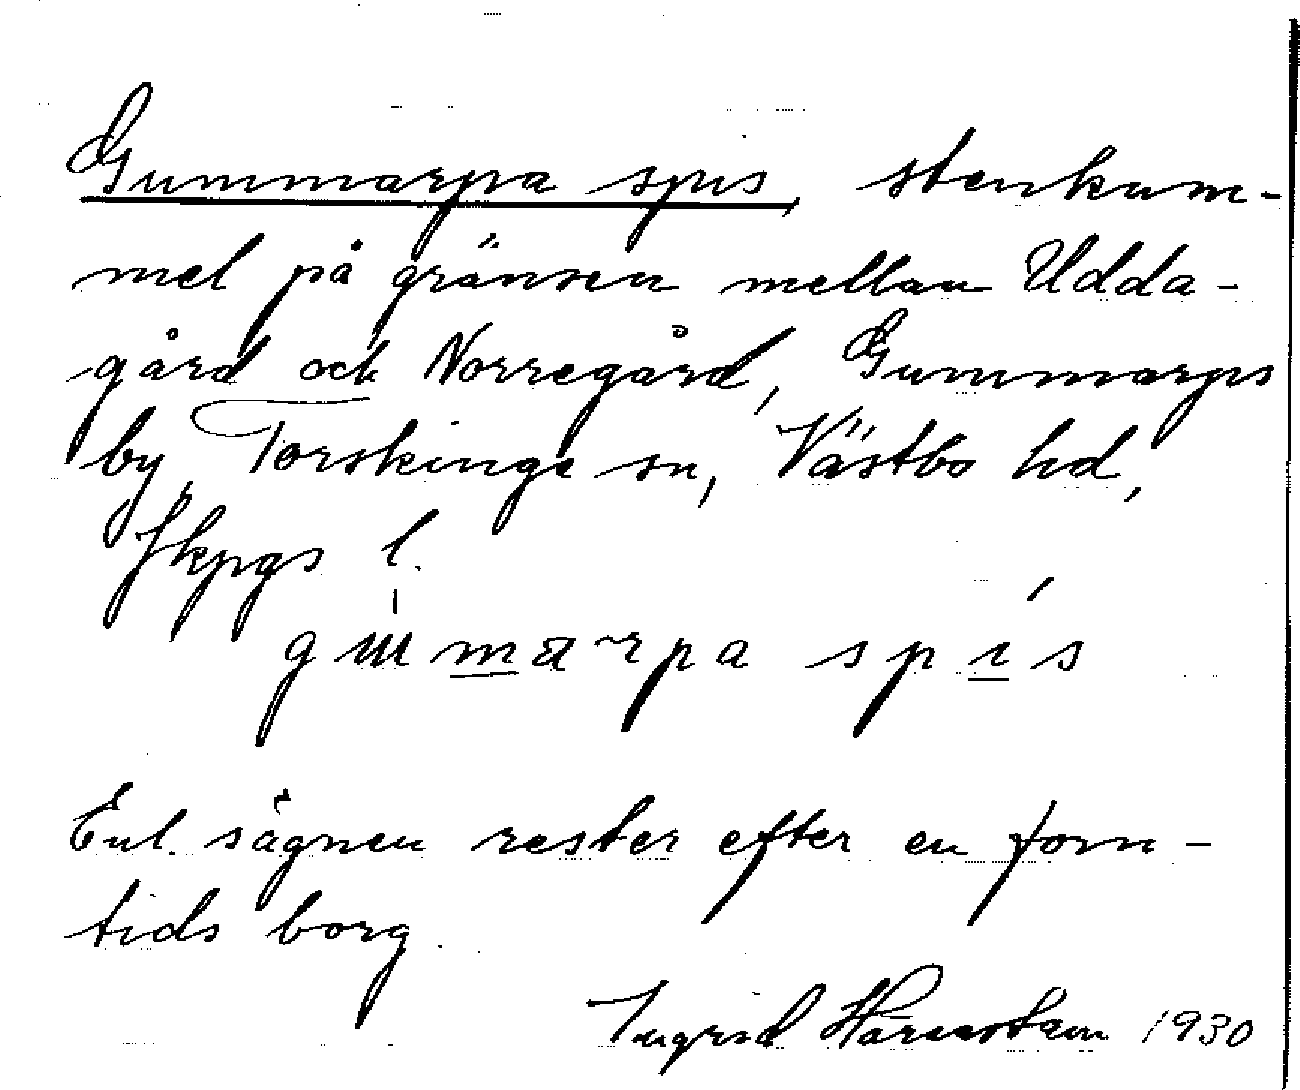 Gummarpa spis, stenkum-
mel på gränsen mellan Udda-
gård och Norregård, Gummarps
by, Torskinge sn, Västbo hd,
Jkpgs l.
spis
Enl. sägnen rester efter en forn-
tids borg.
Ingrid Härenstam 1930